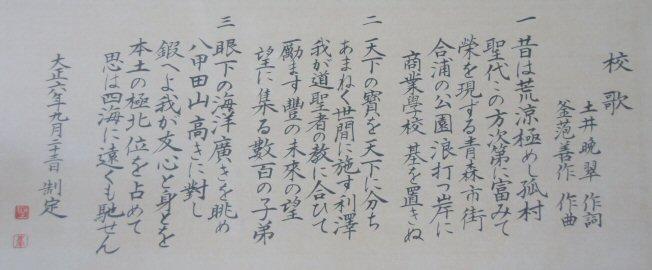 校歌
土井晩翠 作詞
釜萢善作 作曲
一 昔は荒涼極めし孤村
聖代この方次第に富みて
榮を現ずる青森市街
合浦の公園浪打つ岸に
商業學校 基を置きぬ
二 天下の寶を天下に分ち
あまねく世間に施す利澤
我が道聖者の教に合ひて
勵ます豐の未來の望
望に集る數百の子弟
三 眼下の海洋廣きを眺め
八甲田山高きに對し
鍛へよ我が友心と身とを
本土の極北位を占めて
思は四海に遠くも馳せん
大正六年九月 制定